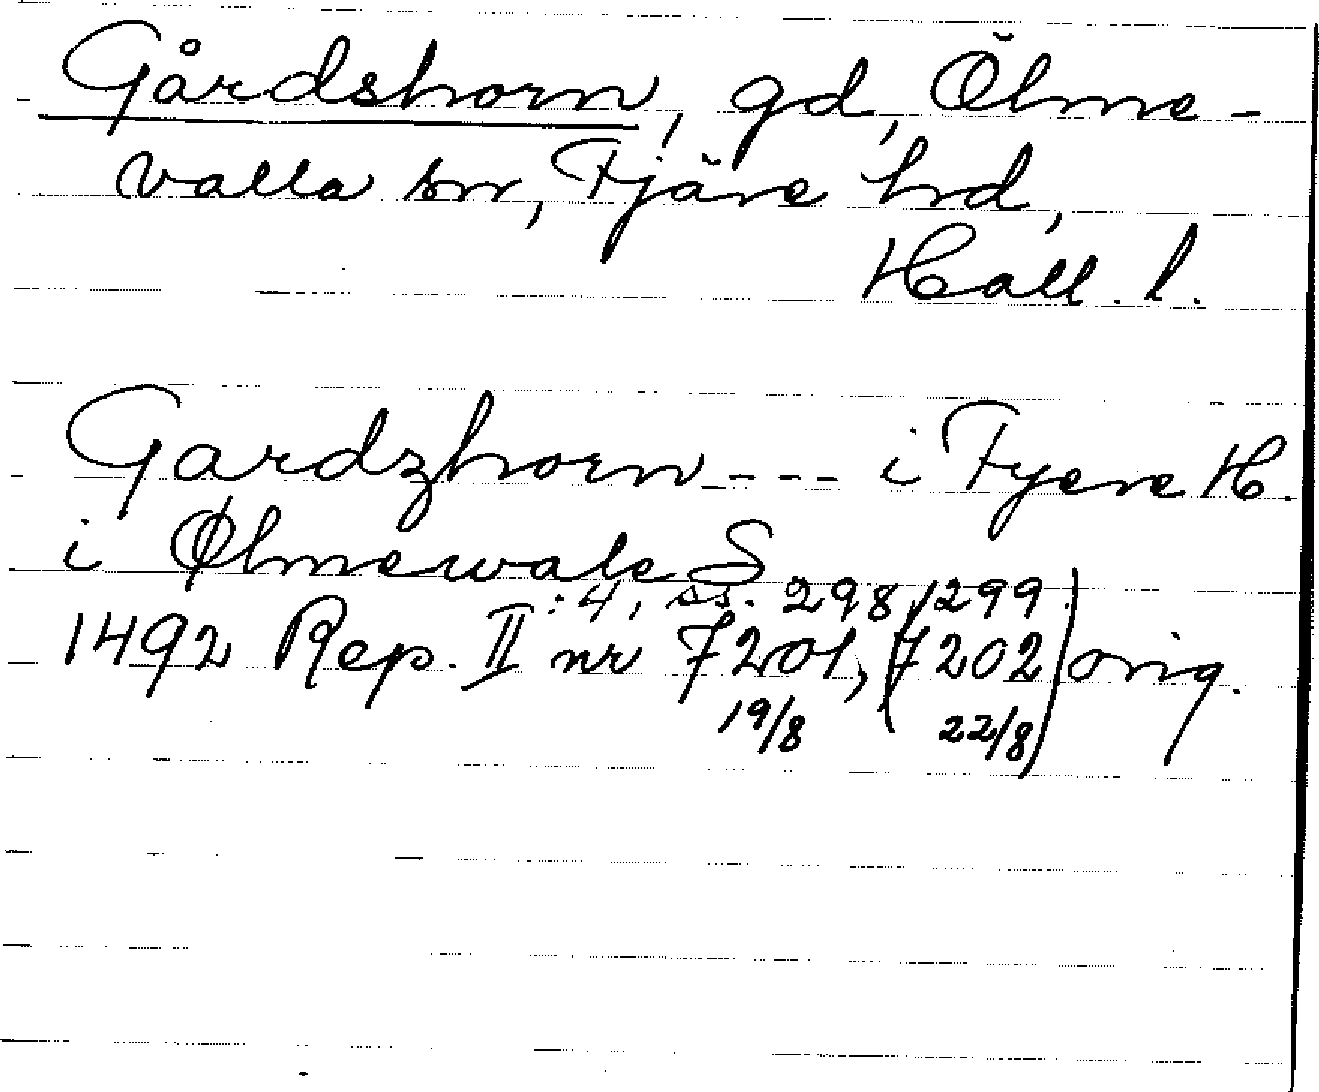 Gårdshorn, gd, Ölme-
valla sn, Fjäre hrd,
Hall. l.
Gardzhorn---- i Fyere H.
i Ølmewale S
:4, ss. 298, 299
1492 Rep. II nr 7201, (7202) orig.
19/8 22/8